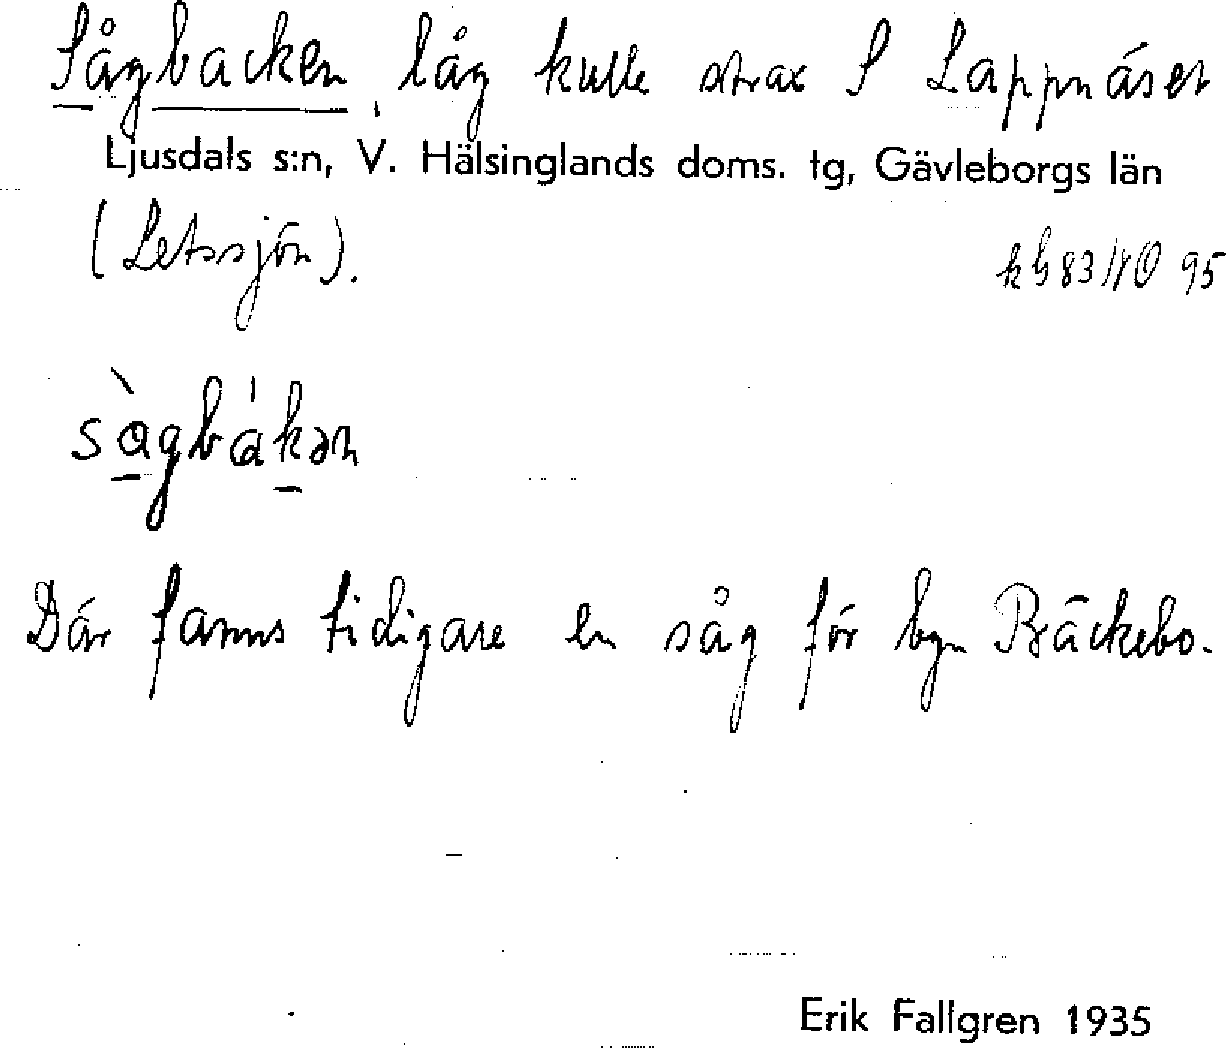 Sågbacken, låg kulle strax S Lappnäset
Ljusdals s:n, V. Hälsinglands doms. tg, Gävleborgs län
(Letssjön).
95
Där fanns tidigare en såg för byn Bäckebo.
Erik Fallgren 1935